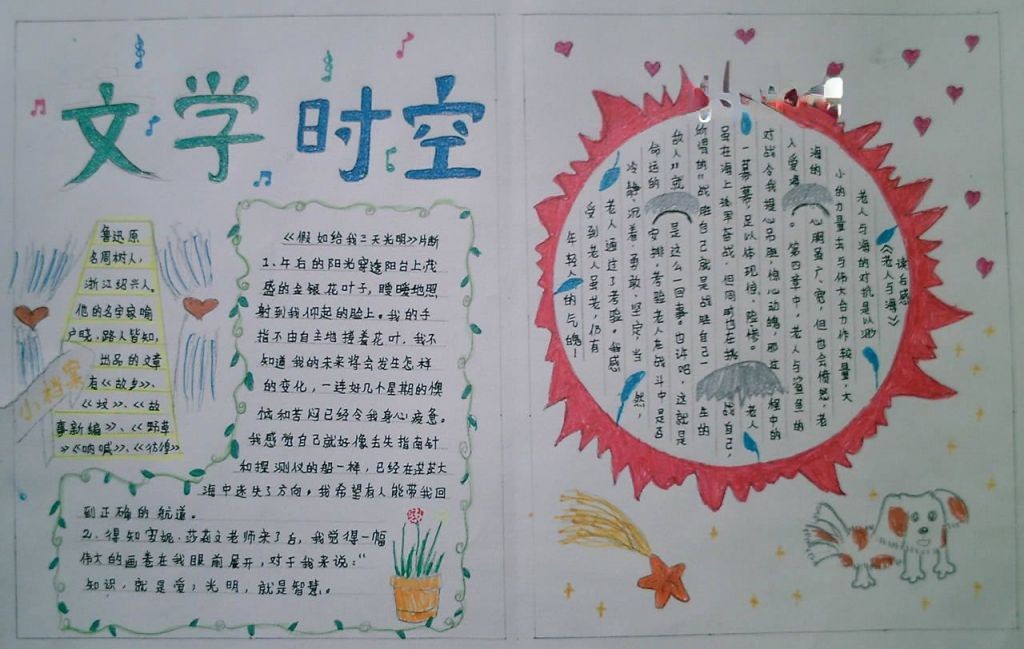 文学时空
鲁迅原
名周树人，
浙江绍兴人。
他的名字家喻
户晓，路人皆知，
出品的文章
有《故乡》、
《坟》、《故
事新编》、《野草
》《呐喊》、《彷徨》
小档案
《假如给我三天光明》片断
1、午后的阳光穿透阳台上茂
盛的金银花叶子，暖暖地照
射到我仰起的脸上。我的手
指不由自主地搓着花叶，我不
知道我的未来将会发生怎样
的变化，一连好几个星期的懊
恼和苦闷已经令我身心疲惫。
我感觉自己就好像丢失指南针
和探测仪的船一样，已经在茫茫大
海中迷失了方向。我希望有人能带我回
到正确的航道。
2、得知安妮·莎莉文老师来了后，我觉得一幅
伟大的画卷在我眼前展开，对于我来说：“
知识，就是爱；光明，就是智慧。
读后感
《老人与海》
老人与海的对抗是以渺
小的力量去与伟大台力作较量，大
海的
心胸虽广、宽，但也会愤怒，老
人受遇
第四章中，老人与鲨鱼的
对战令我提心吊胆，惊心动魄，那过
程中的
一幕幕，足以体现惊、险、惨。
老人
虽在海上孤军奋战，但同时也在挑
战自己，
所谓的“战胜自己就是战胜自己一
生的
故人”就
是这么一回事。也许吧，这就是
命运的
安排，考验老人在战斗中是否
冷静、沉着、勇敢、坚定，当
然，
老人通过了考验。每感
受到老人虽老，仍有
年轻人的气魄！